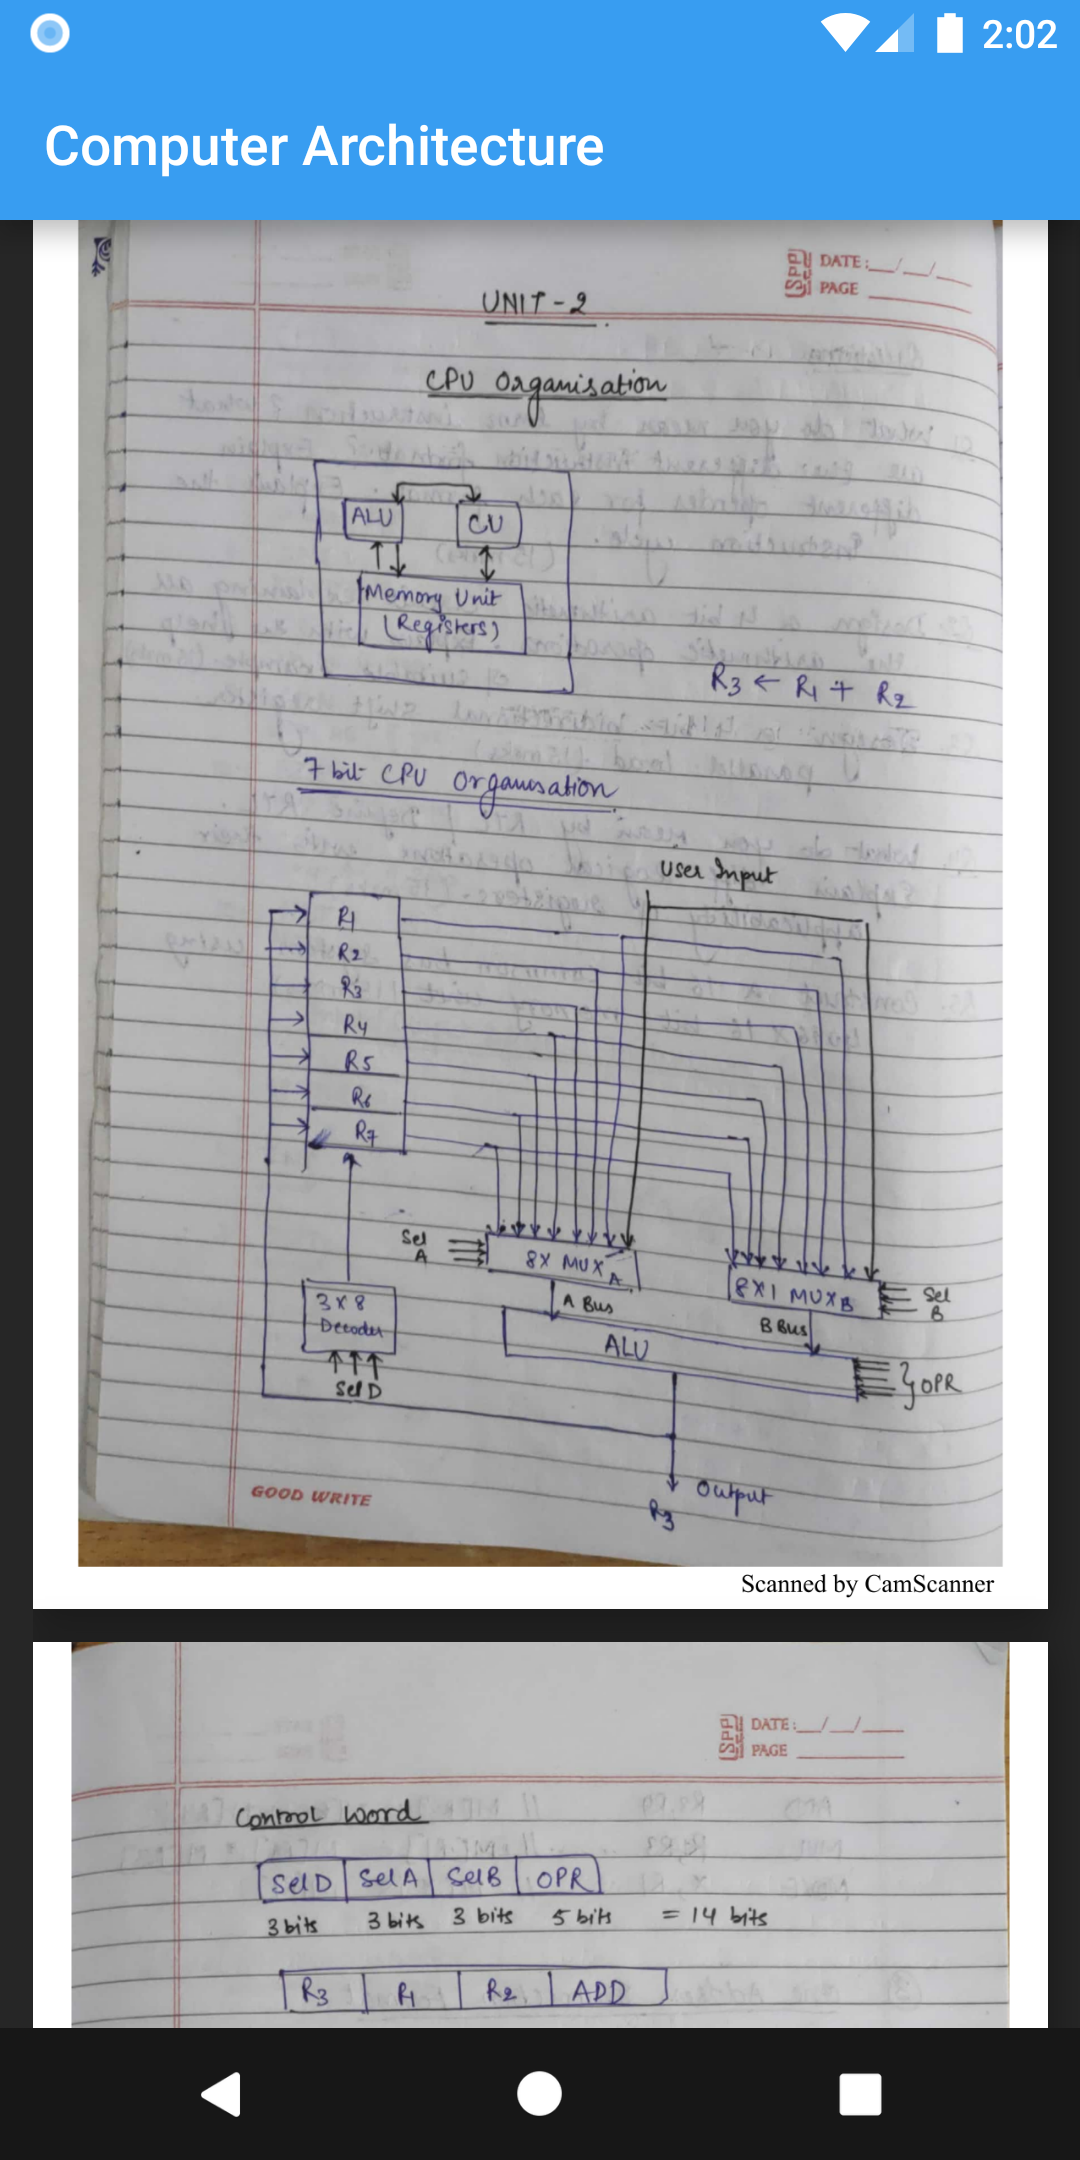 2:02
Computer Architecture
DATE:
PAGE
UNIT-2
CPU Organisation
ALU
CU
Memory Unit
(Registers)
R3 ← R1 + R2
7 bit CPU Organisation
User Input
R1
R2
R3
R4
R5
R6
R7
Sel
A
8X MUX A
8X1 MUX B
Sel
B
3X8
Decoder
A Bus
B Bus
ALU
OPR
Sel D
Output
R3
GOOD WRITE
Scanned by CamScanner
DATE:
PAGE
Control Word
SelD SelA SelB OPR
3 bits 3 bits 3 bits 5 bits = 14 bits
R3 R1 R2 ADD